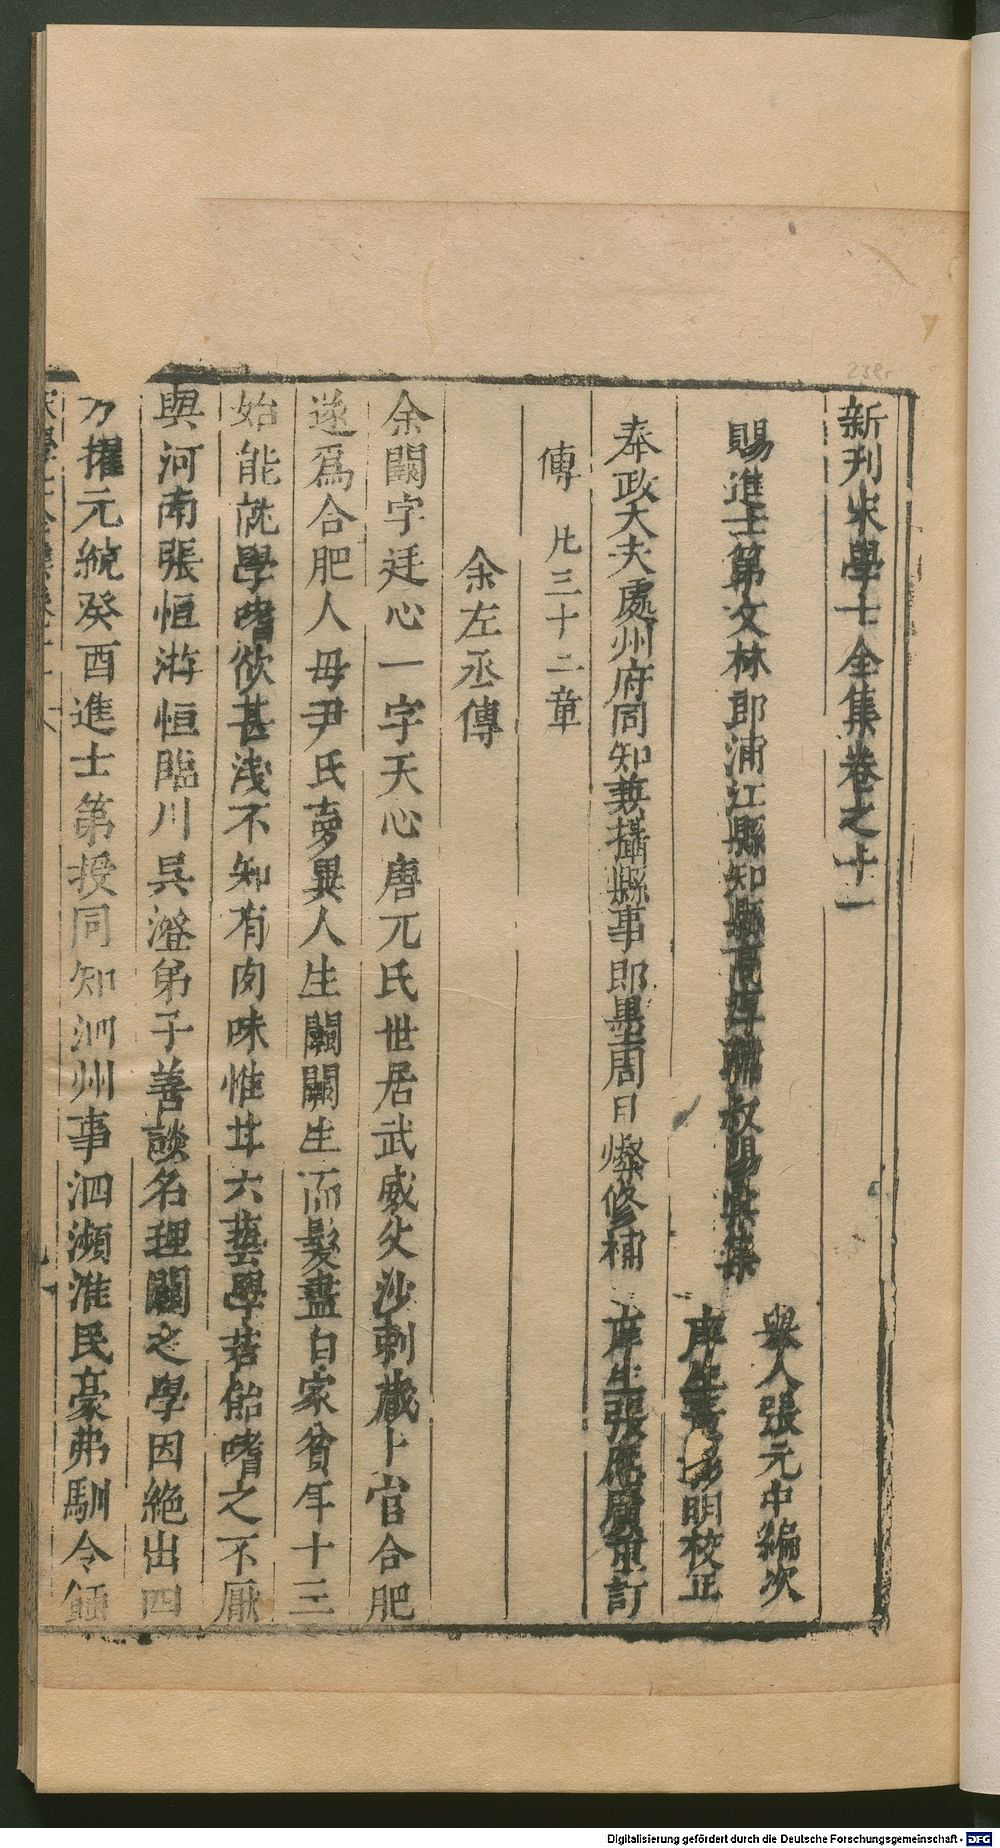 新刊宋學士全集卷之十一
賜進士第文林郎浦江縣知縣高淳韓叔陽彙集
舉人張元中編次
庠生 明校正
奉政大夫處州府同知兼攝縣事郎墨周日燦修補
庠生張應廣重訂
傳 凡三十二章
余左丞傳
余闕字廷心一字天心唐兀氏世居武威父沙剌蔵卜官合肥
遂爲合肥人母尹氏夢異人生闕闕生而髮盡白家貧年十三
始能就學嗜欲甚淺不知有肉味惟甘六藝學若飴嗜之不厭
與河南張恒游恒臨川吳澄弟子善談名理闕之學因絶出四
方擢元統癸酉進士第授同知泗州事泗瀕淮民豪弗馴令
宋學士全集卷十一
Digitalisierung gefördert durch die Deutsche Forschungsgemeinschaft - DFG